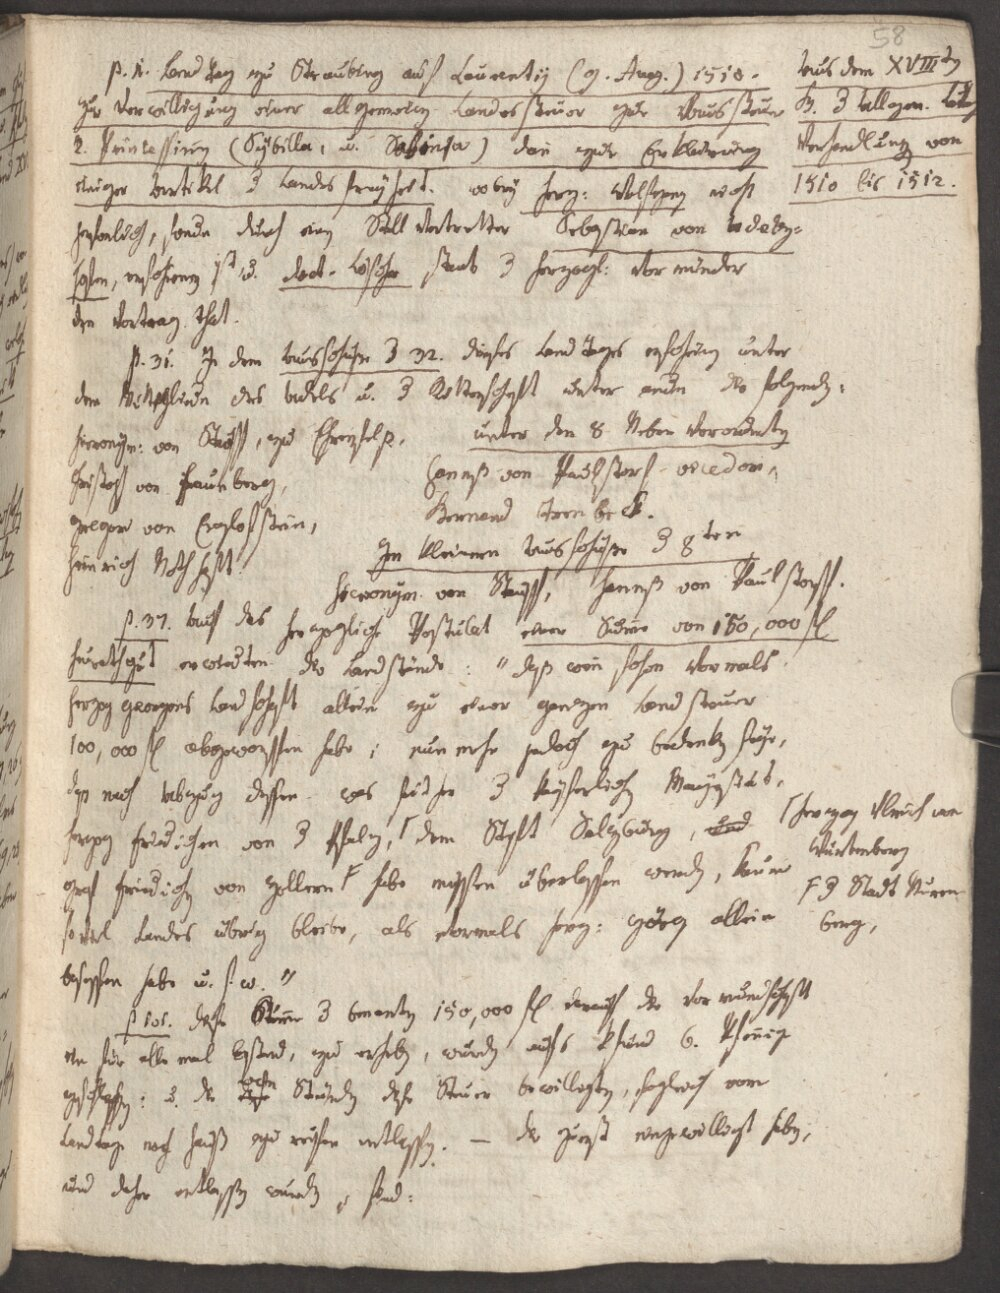 58
p. 1. Landtag zu Straubing auf Laurentij (9. Aug.) 1510.
zur Verwilligung einer allgemeinen Landessteuer zur Aussteuer
2. Prinzessinen (Sybilla, u. Sabina) dan zur Erklärung
einiger Artikel d Landsfreyheit. wobey Herz: Wolfgang nicht
persönlich, sondern durch einen Stellvertretter Sebastian von
ist u. doct. Löscher statt d herzogl: Vormünder
den Vortrag that.
Aus dem XVIII ten
B. d altagen. Ldtg
Verhandlungen von
1510 bis 1512.
p. 31. In dem Ausschusse d 32. dieses Landtages erschienen unter
den Mitgliedern des Adels u. d Ritterschaft unter andern die folgenden:
Hieronym: von Stauff, zu Ehrenfels.
Christoph von Fraunberg,
Gregor von Egloffstein,
Heinrich Nothhafft.
unter den 8 Neben Verordneten
Hannß von Paulstorf vicedom,
Bernard
Im kleinern Ausschusse d 8ten
Hieronym. von Stauff, Hannß von Paulstorff.
p. 37. Auf das herzogliche Postulat einer Summe von 150,000 fl
Heurathgut erwiederten die Landstände: " daß wein schon Vormals
Herzog Georgens Landschaft allein zu einer ganzen Landsteuer
100,000 fl abgeworffen habe; nun mehr jedoch zu bedenken seye,
daß nach Abzug dessen was seither d Kayserlichen Mayestät,
Herzog Friedrichen von d Pfalz, ⌈ dem Stift Salzburg, und
Graf Friedrichen von Zollern F habe müssen überlassen werden, kaum
soviel Landes übrig bleibe, als vormals Herz: Görg allein
besessen habe u. s. w. "
⌈ herzog Ulrich von
Würtemberg
F d Stadt Nüren
berg,
p 101. Diese Summe d benanten 150,000 fl darauf die Vormundschaft
ein für alle mal bestand, zu erheben, wurden aufs Pfund 6. Pfennig
geschlagen: u. die Ständen diese Steuer bewilligten, sogleich vom
Landtage nach Hauß zu reisen entlassen. — die zuerst eingewilligt haben,
und daher entlassen wurden, sind: